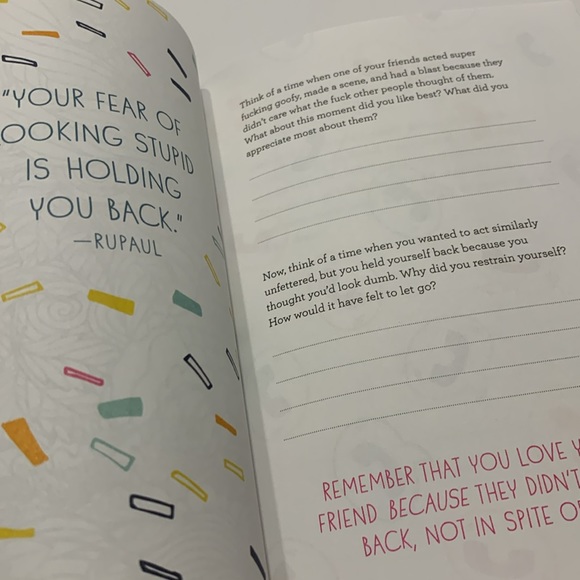 "YOUR FEAR OF
LOOKING STUPID
IS HOLDING
YOU BACK."
—RUPAUL
Think of a time when one of your friends acted super
fucking goofy, made a scene, and had a blast because they
didn't care what the fuck other people thought of them.
What about this moment did you like best? What did you
appreciate most about them?
Now, think of a time when you wanted to act similarly
unfettered, but you held yourself back because you
thought you'd look dumb. Why did you restrain yourself?
How would it have felt to let go?
REMEMBER THAT YOU LOVE
FRIEND BECAUSE THEY DIDN'T
BACK, NOT IN SPITE